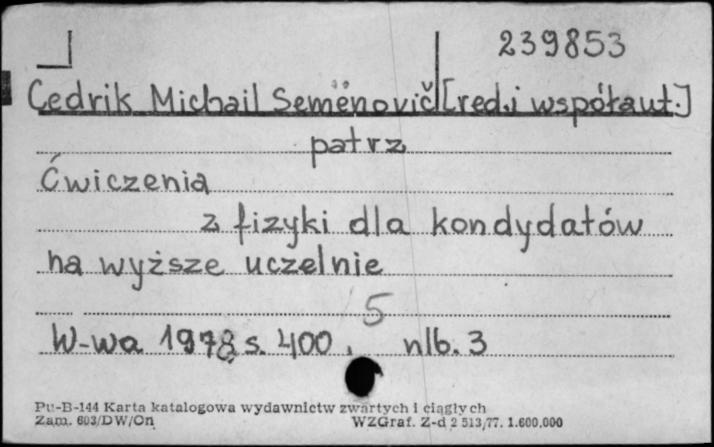 239853
Cedrik Michail Semënovič [red. i współaut.]
patrz
Ćwiczenia
z fizyki dla kondydatów
na wyższe uczelnie
5
W-wa 1978 s. 400, nlb. 3
Pu-B-144 Karta katalogowa wydawnictw zwartych i ciągłych
Zam. 603/DW/On WZGraf. Z-d 2 513/77. 1.600.000